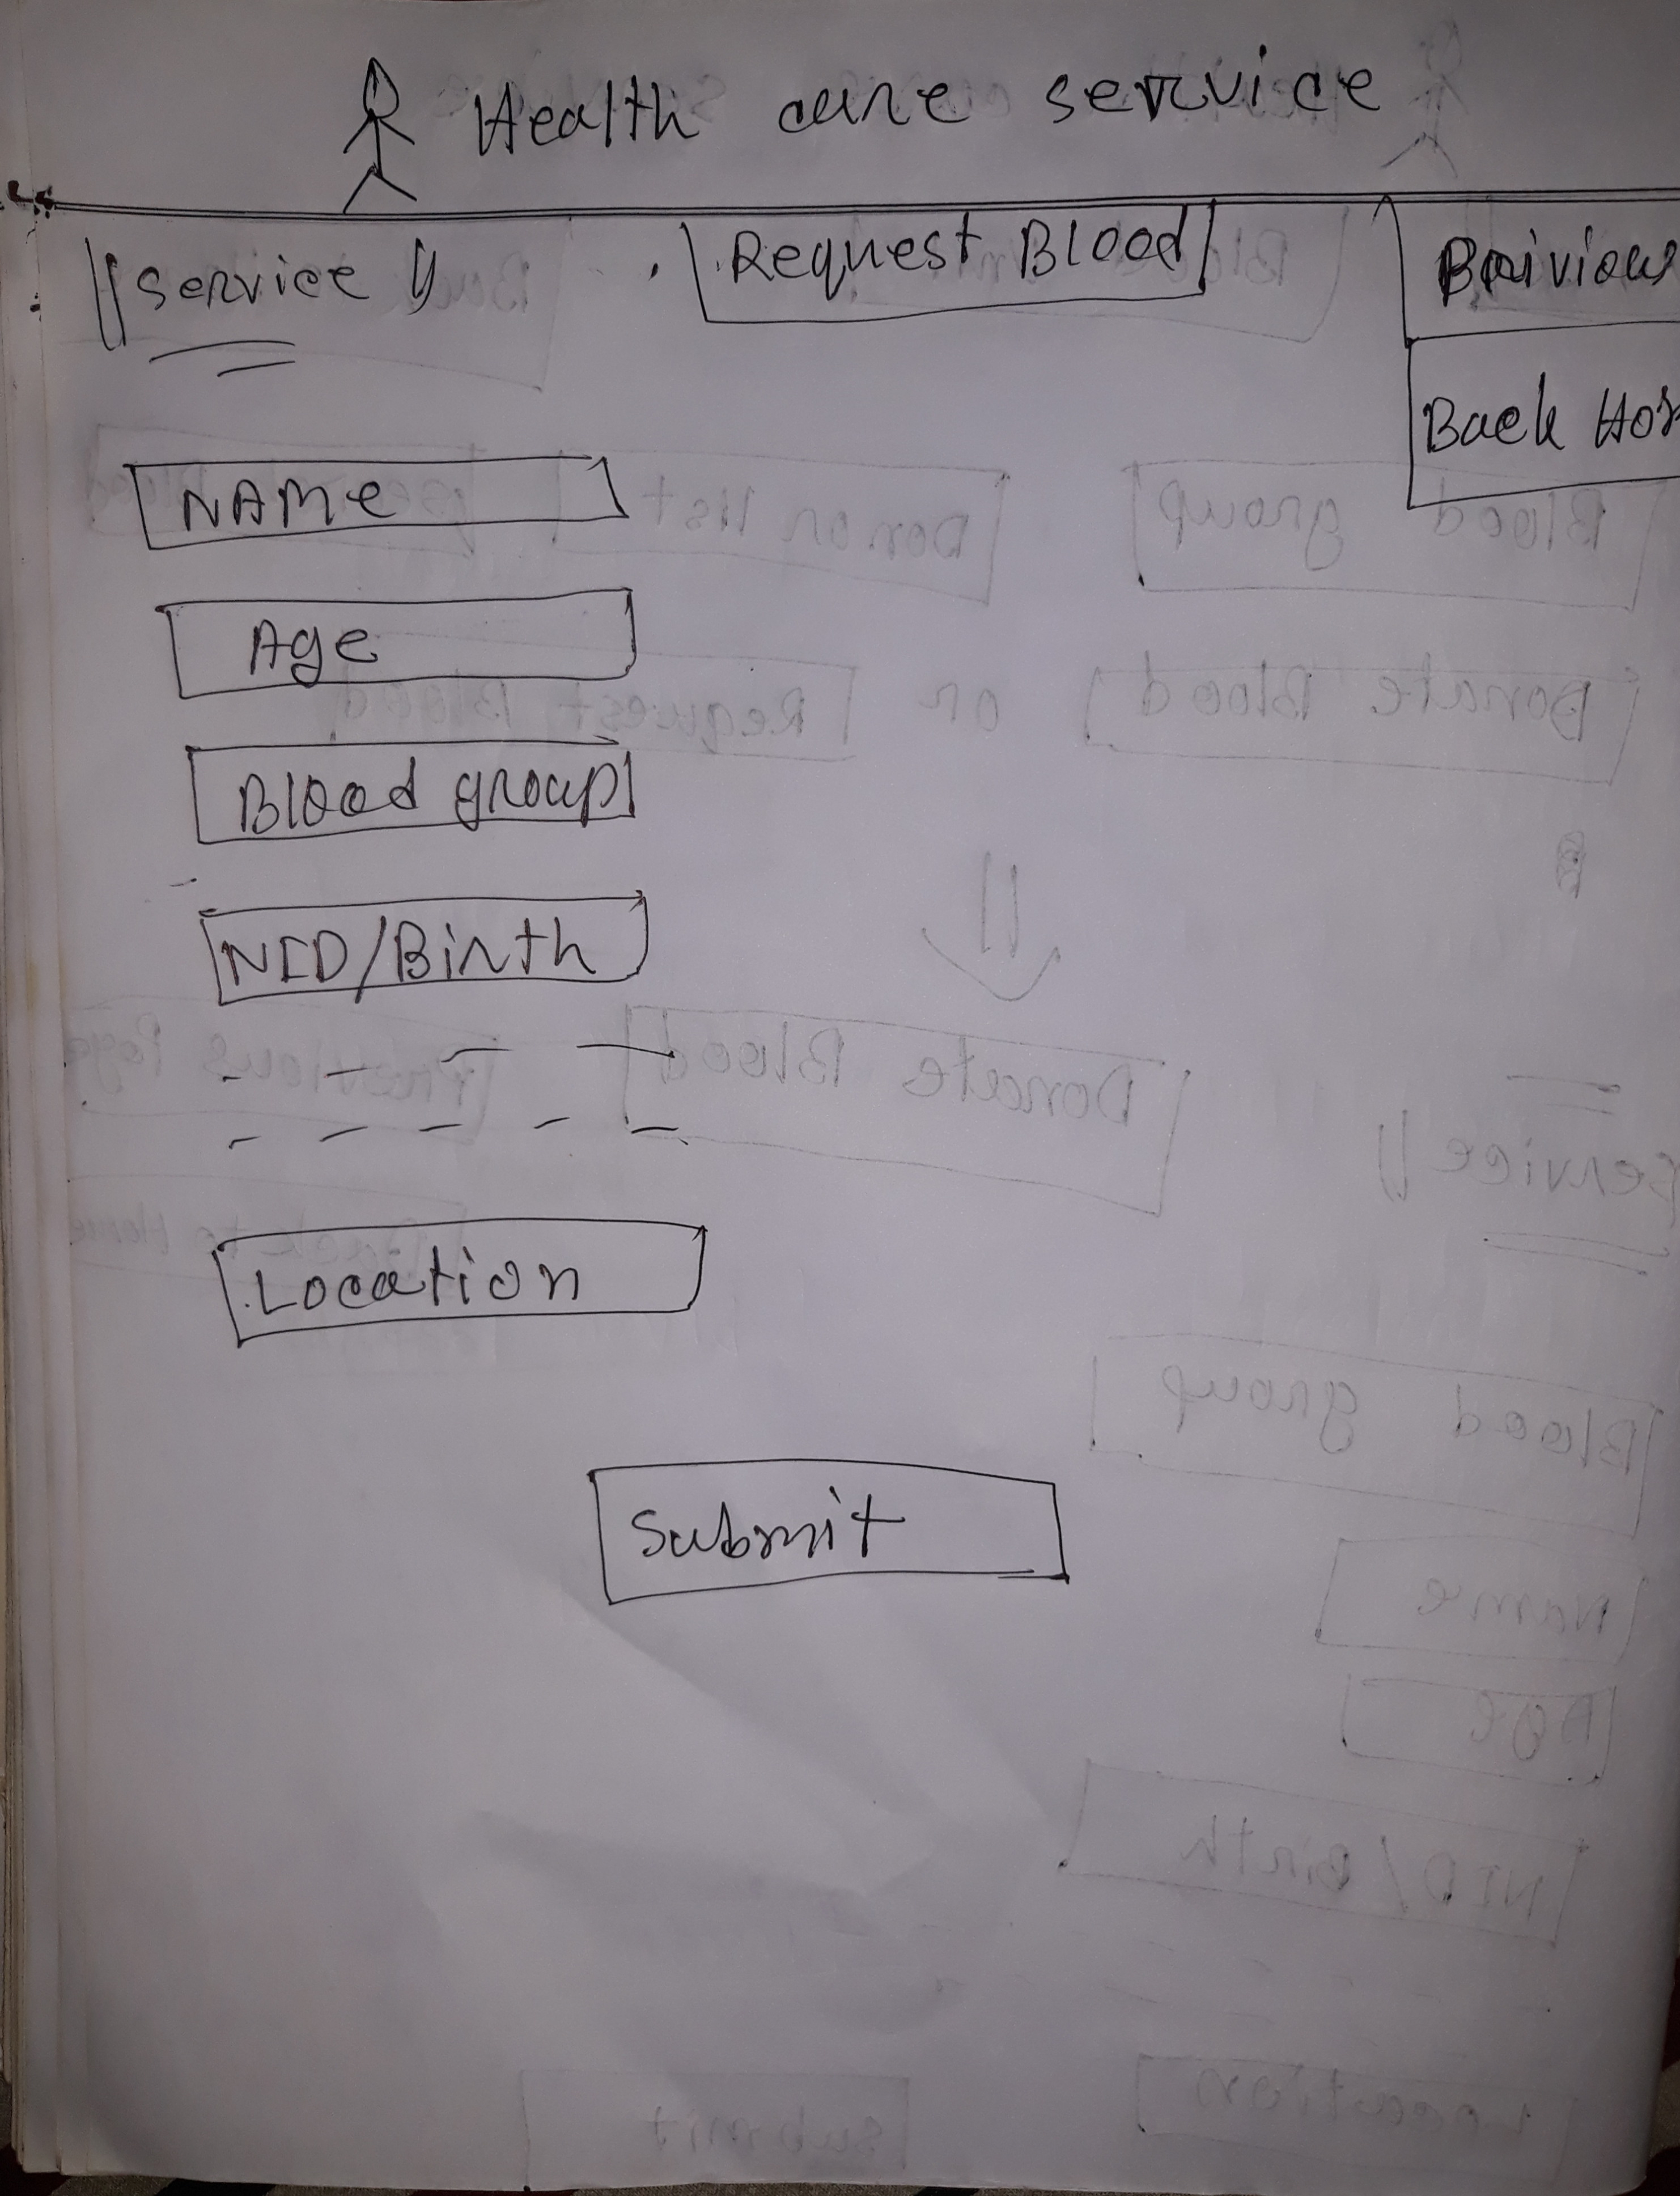 Health care service
Service
Request Blood
Back
NAMe
Age
Blood group
NID/Birth
Location
Submit